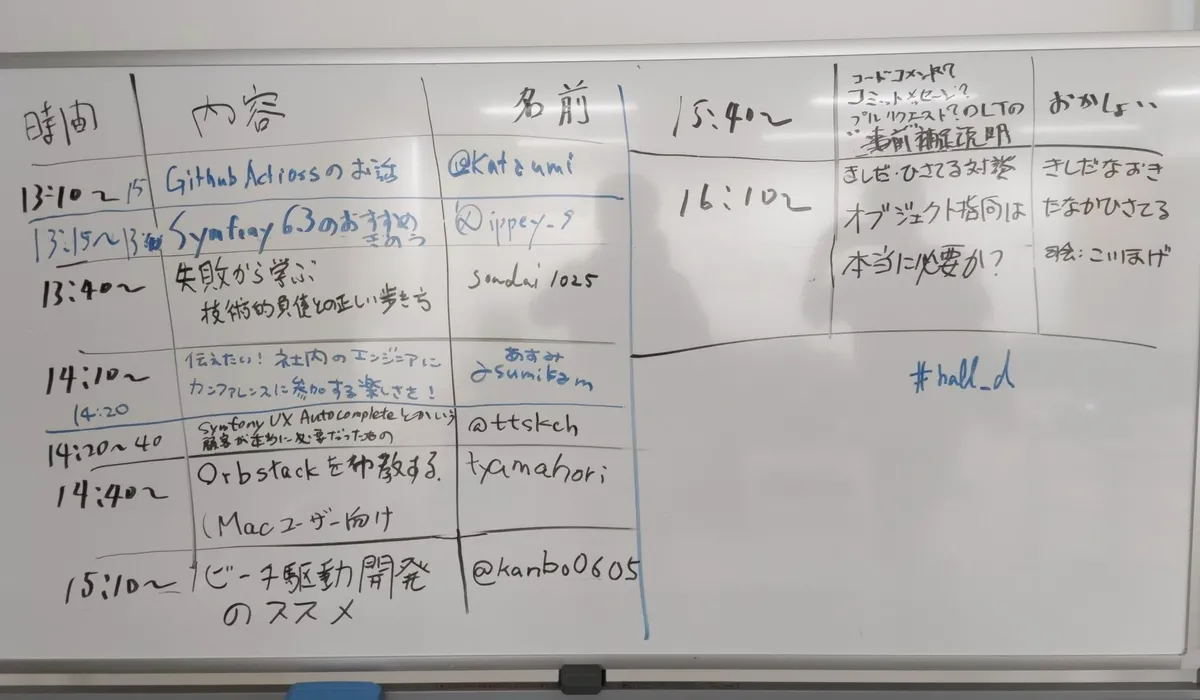 時間 内容 名前
13:10〜15 GithubActionsのお話 @Katzumi
13:15〜13: Symfony 6.3のおすすめ @ippey_s
きのう
13:40〜 失敗から学ぶ soudai1025
技術的負債との正しい歩き方
14:10〜 伝えたい! 社内のエンジニアに あすみ
14:20 カンファレンスに参加する楽しさを! asumikam
14:20〜40 Symfony UX Autocompleteとかいう @ttskch
顧客が本当に必要だったもの
14:40〜 Orbstackを布教する. tyamahori
(Macユーザー向け
15:10〜 ビーチ駆動開発 @kanbo0605
のススメ
15:40〜 コードコメント? おかしょい
コミットメッセージ?
プルリクエスト?のLTの
事前補足説明
16:10〜 きしだ・ひさてる対談 きしだなおき
オブジェクト指向は たなかひさてる
本当に必要か? 司会:こいほげ
#hall_d